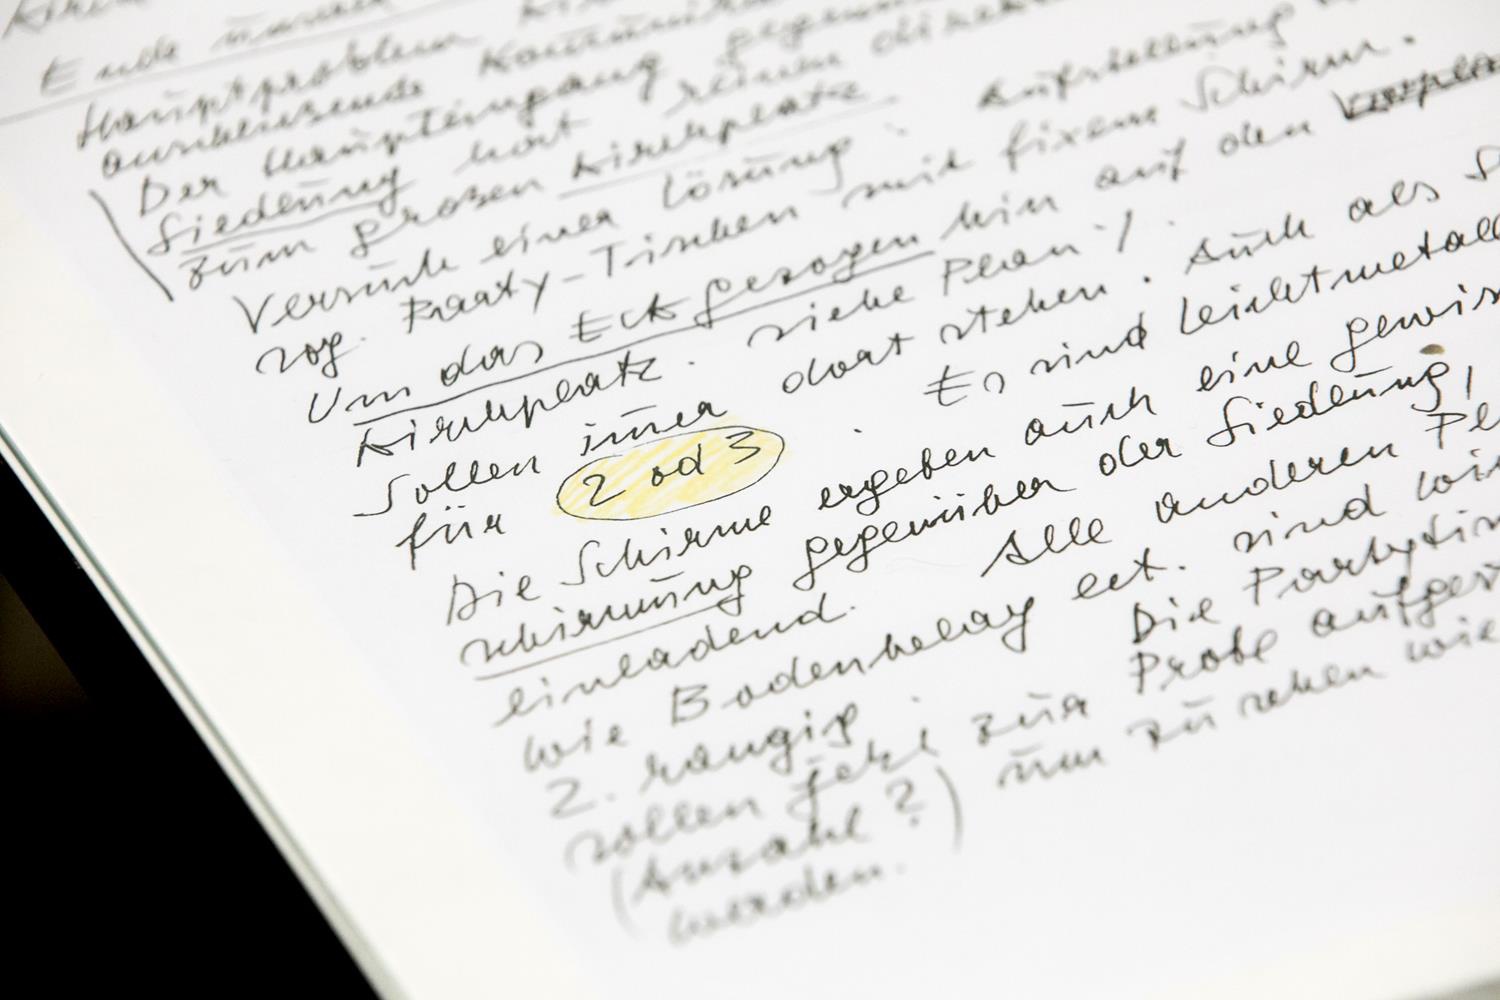 Ende
Hauptproblem
ausreichende
Der Haupteingang gegenü
Siedlung hat keinen direkt
zum grossen Kirchplatz.
Versuch einer Lösung: Aufstellung
sog. Party-Tischen mit fixem Schirm.
Um das Eck gezogen hin auf den
Kirchplatz. siehe Plan!
Sollen immer dort stehen. Auch als S
für 2 od 3. Es sind Leichtmetall
Die Schirme ergeben auch eine gewis
schirmung gegenüber der Siedlung,
einladend. Alle anderen Pe
wie Bodenbelag ect. sind wi
2. rangig. Die Partytis
sollen jetzt zur Probe aufges
(Anzahl?) um zu sehen wie
werden.